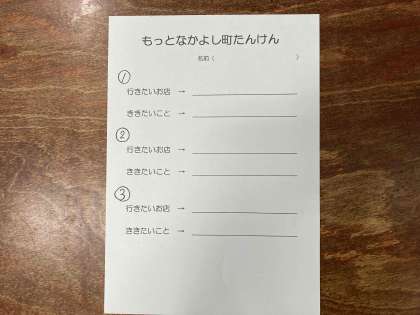 もっとなかよし町たんけん
名前（　　　　　　　　　　）
①
行きたいお店　→
ききたいこと　→
②
行きたいお店　→
ききたいこと　→
③
行きたいお店　→
ききたいこと　→